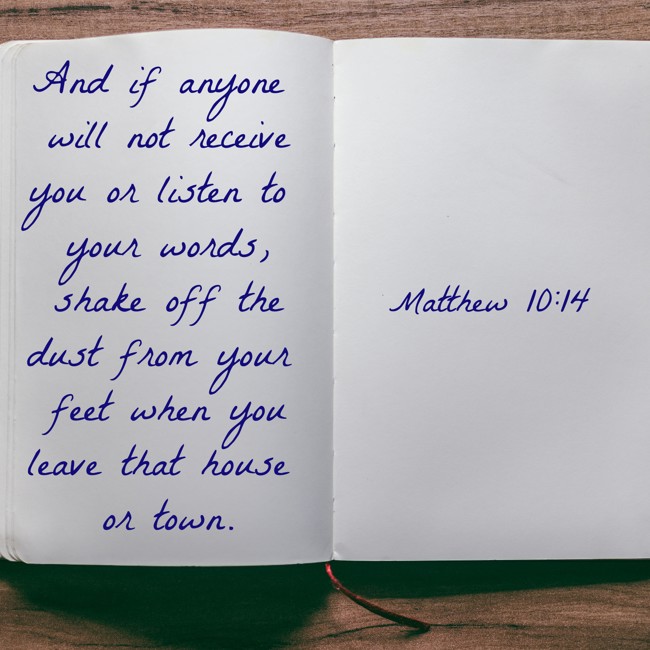 And if anyone
will not receive
you or listen to
your words,
shake off the
dust from your
feet when you
leave that house
or town.
Matthew 10:14